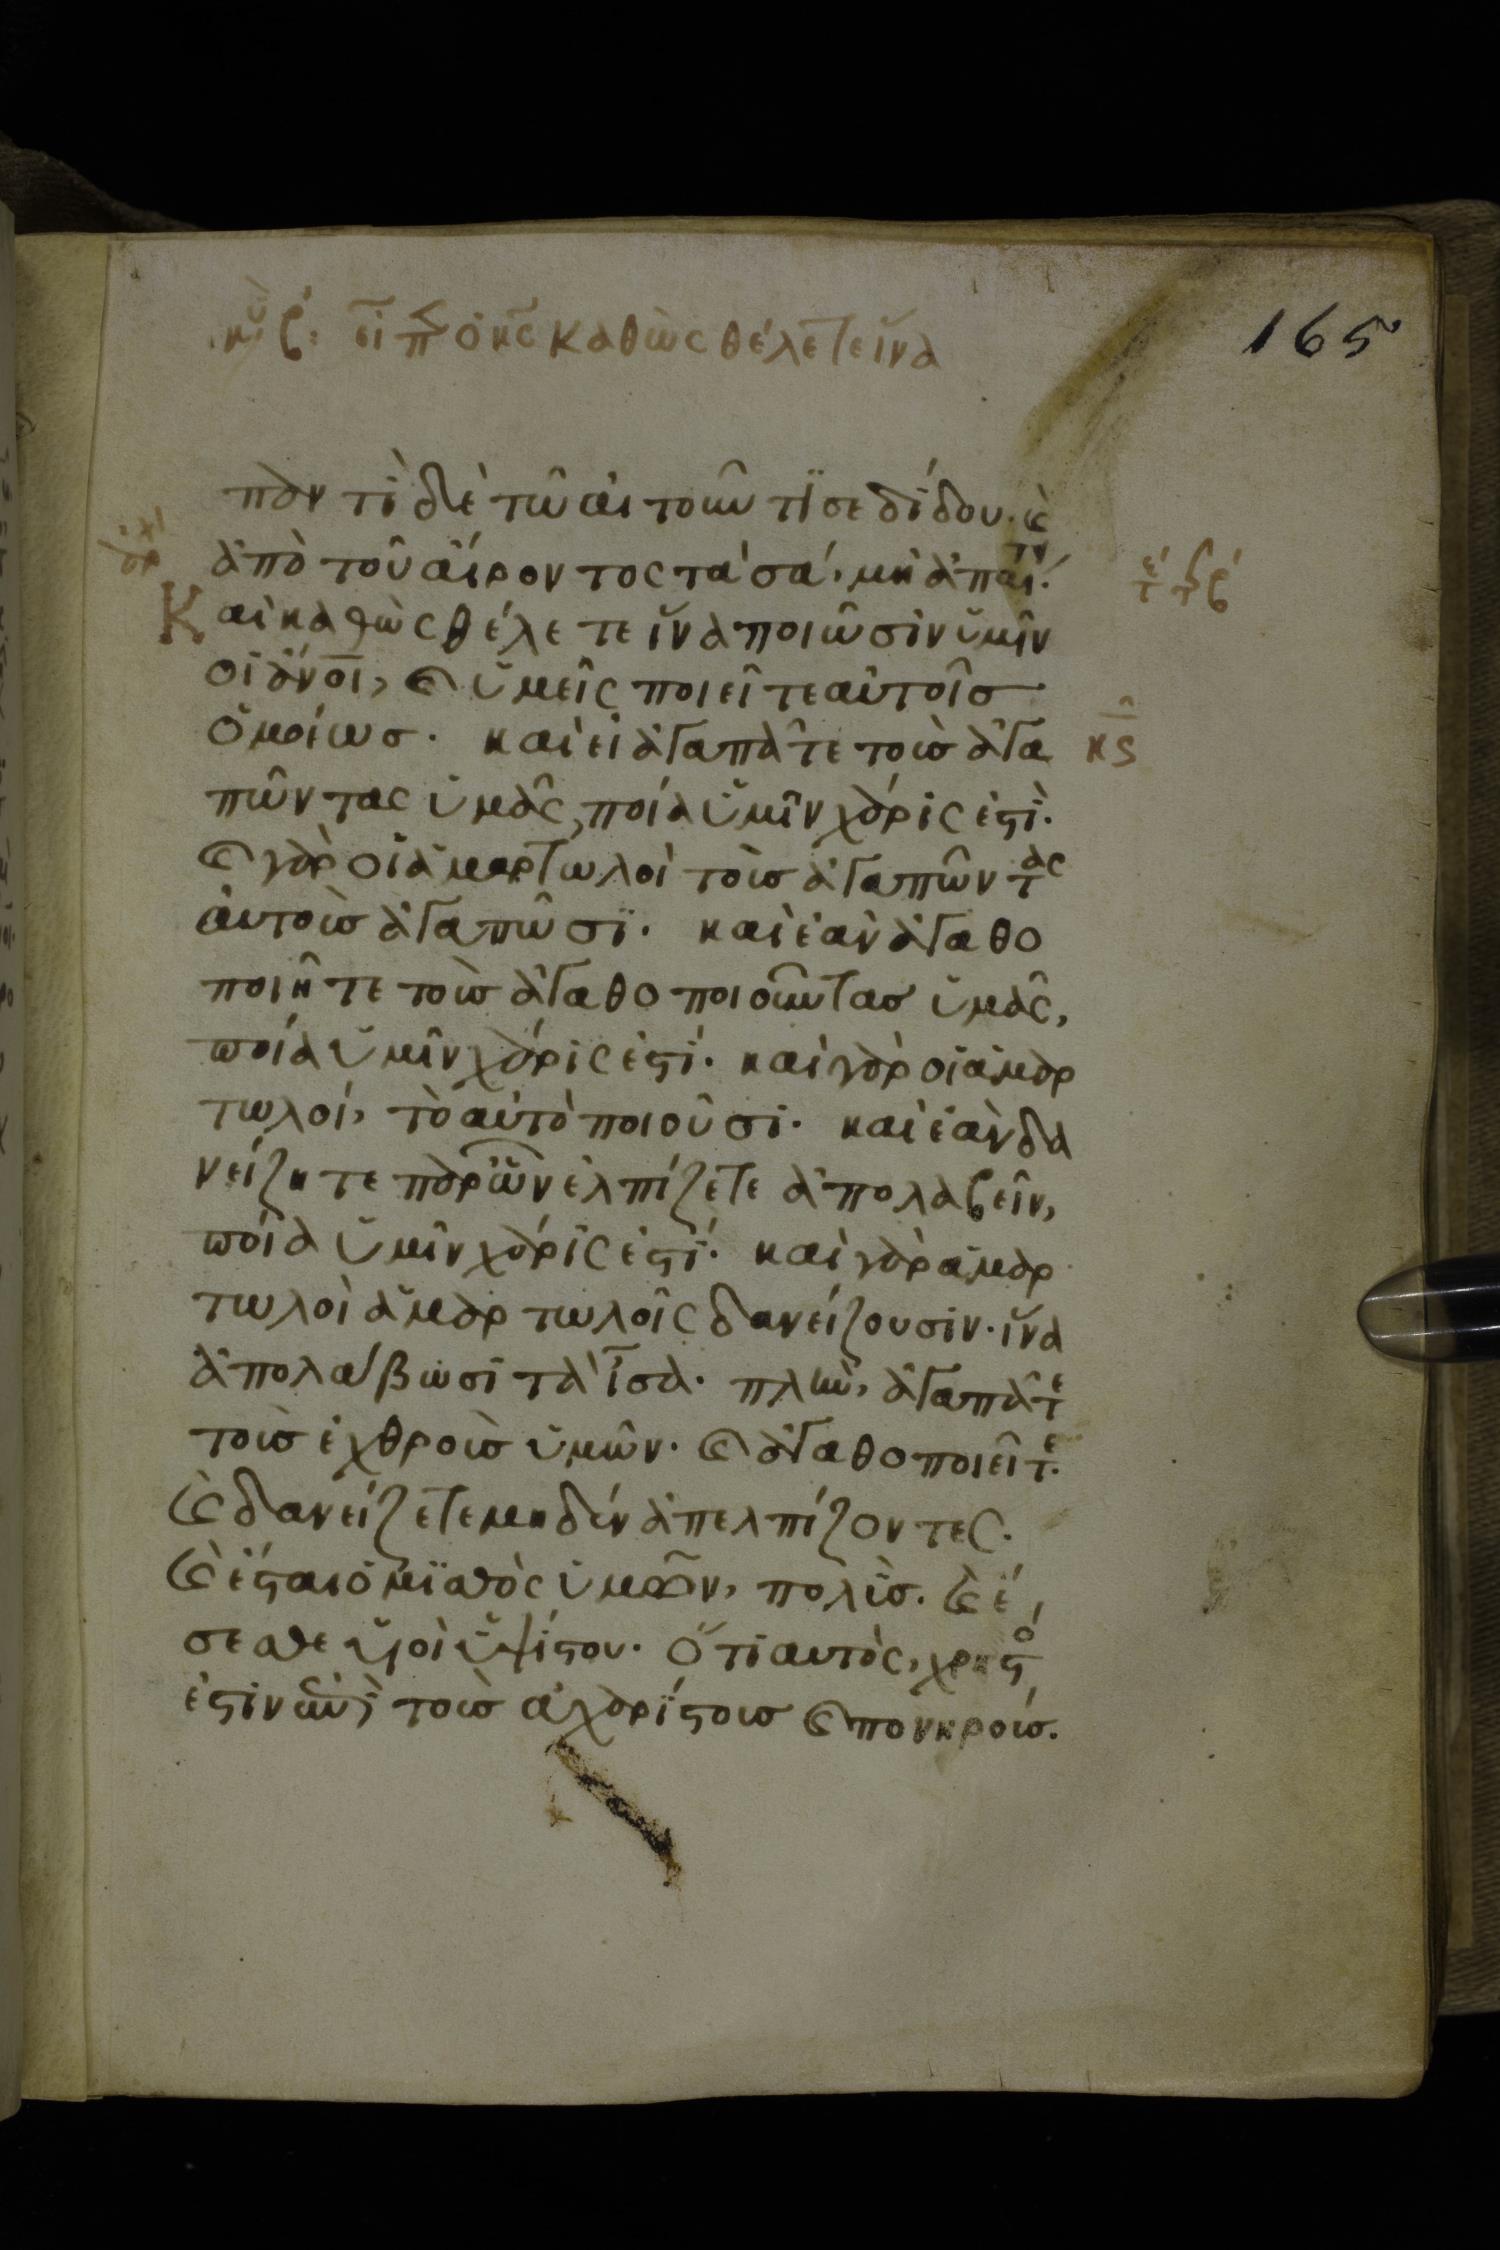 κυ β εἶπ ὁ κς καθὼς θέλετε ἵνα
165
παντὶ δὲ τῶ αἰτοῦντί σε δίδου. καὶ
ἀπὸ τοῦ αἴροντος τὰ σά, μὴ ἀπαίτει.
Καὶ καθὼς θέλετε ἵνα ποιῶσιν ὑμῖν
οἱ ἄνοι, καὶ ὑμεῖς ποιεῖτε αὐτοῖσ
ὁμοίωσ. καὶ εἰ ἀγαπᾶτε τοὺσ ἀγα
κς
πῶντας ὑμᾶς, ποία ὑμῖν χάρις ἐστί.
καὶ γὰρ οἱ ἁμαρτωλοὶ τοὺσ ἀγαπῶντας
αὐτοὺσ ἀγαπῶσι. καὶ ἐὰν ἀγαθο
ποιῆτε τοὺσ ἀγαθοποιοῦντασ ὑμᾶς,
ποία ὑμῖν χάρις ἐστί. καὶ γὰρ οἱ ἁμαρ
τωλοί, τὸ αὐτὸ ποιοῦσι. καὶ ἐὰν δα
νείζητε παρ ὧν ἐλπίζετε ἀπολαβεῖν,
ποία ὑμῖν χάρις ἐστί. καὶ γὰρ ἁμαρ
τωλοὶ ἁμαρτωλοῖς δανείζουσιν. ἵνα
ἀπολάβωσι τὰ ἴσα. πλὴν, ἀγαπᾶτε
τοὺσ ἐχθροὺσ ὑμῶν. καὶ ἀγαθοποιεῖτε.
καὶ δανείζετε μηδὲν ἀπελπίζοντες.
καὶ ἔσται ὁ μισθὸς ὑμῶν, πολὺσ. καὶ ἔ
σεσθε υἱοὶ ὑψίστου. ὅτι αὐτὸς, χρηστὸ
ἐστιν ἐπὶ τοὺσ ἀχαρίστουσ καὶ πονηρούσ.